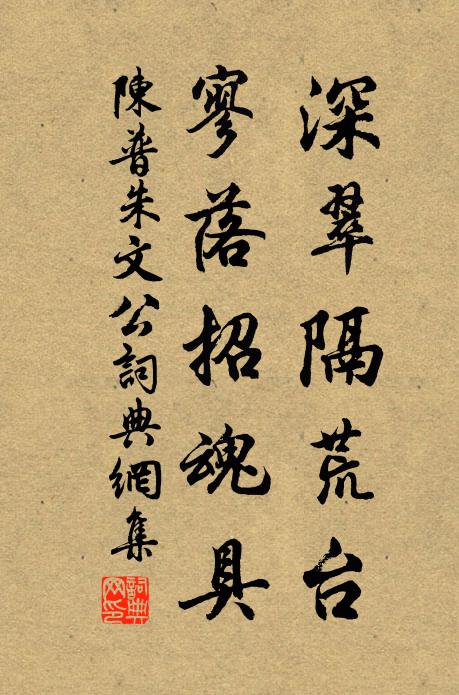 深翠隔荒台
寥落招魂具
陳普朱文公詞典網集
詞典網印